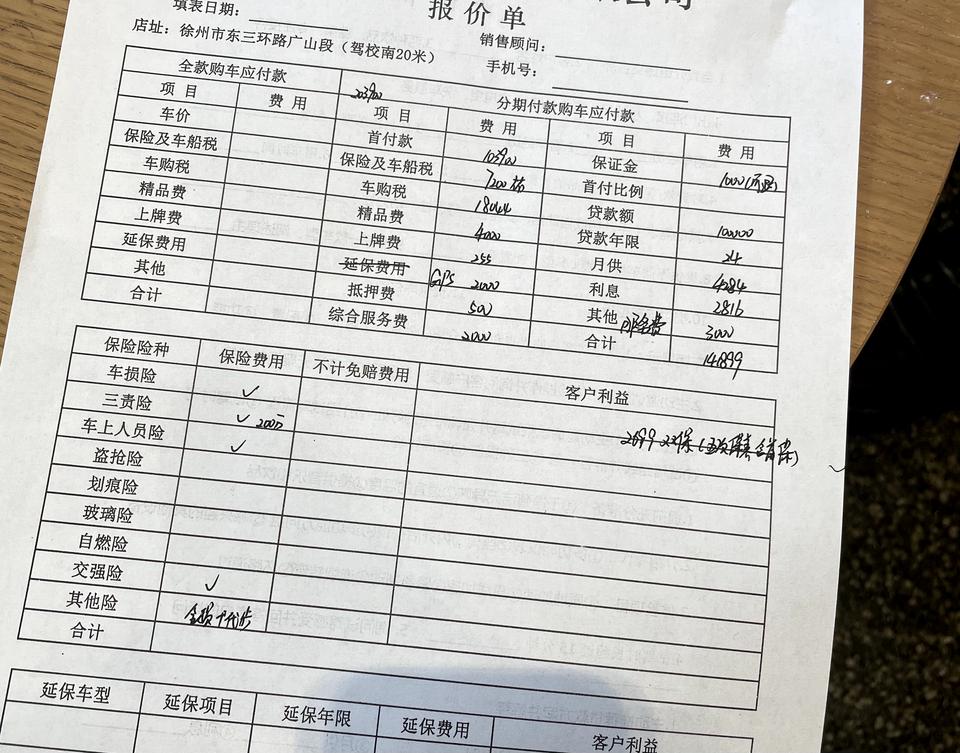 填表日期:
报价单
店址: 徐州市东三环路广山段 (驾校南20米)
销售顾问:
手机号:
全款购车应付款 分期付款购车应付款
203900
项 目 费 用 项 目 费 用 项 目 费 用
车价 首付款 103900 保证金 1000(可退)
保险及车船税 保险及车船税 7200 首付比例
车购税 车购税 18044 贷款额 100000
精品费 精品费 4000 贷款年限 24
上牌费 上牌费 255 月供 4284
延保费用 延保费用 GPS 2000 利息 2816
其他 抵押费 500 其他 3000
合计 综合服务费 2000 合计 141899
保险险种 保险费用 不计免赔费用 客户利益
车损险 ✓
三责险 ✓ 200万
车上人员险 ✓ 2699
盗抢险
划痕险
玻璃险
自燃险
交强险 ✓
其他险
合计
延保车型 延保项目 延保年限 延保费用 客户利益